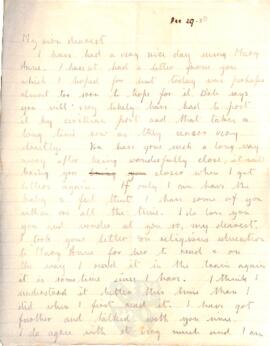 Dec 29.
My own dearest
I have had a very nice day seeing Mary
Anne. I haven't had a letter from you
which I hoped for but today was perhaps
almost too soon to hope for it. Bob says
you will very likely have had to post
it by civilian post and that takes a
long time now as they censor very
strictly. You have gone such a long way
away after being wonderfully close, it will
bring you closer when I get
letters again. If only I can have the
baby I feel that I have some of you
with me all the time. I do love you
and wonder at you so, my dearest.
I took your letter on religious education
to Mary Anne for her to read & on
the way I read it in the train again
it is some time since I have. I think I
understood it better this time than I
did when I first read it. I have got
further and talked with you since.
I do agree with it very much and I am